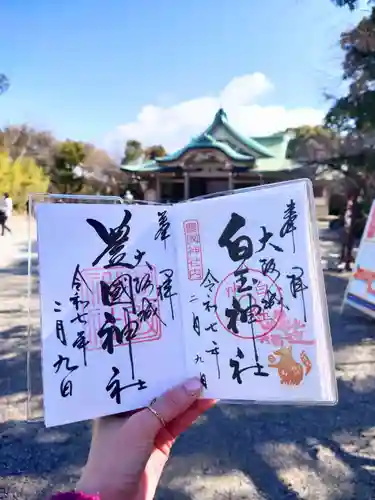 奉拝
大阪城
豊國神社
令和七年
二月九日
奉拝
大阪城
豊國神社内
白玉神社
令和七年
二月九日